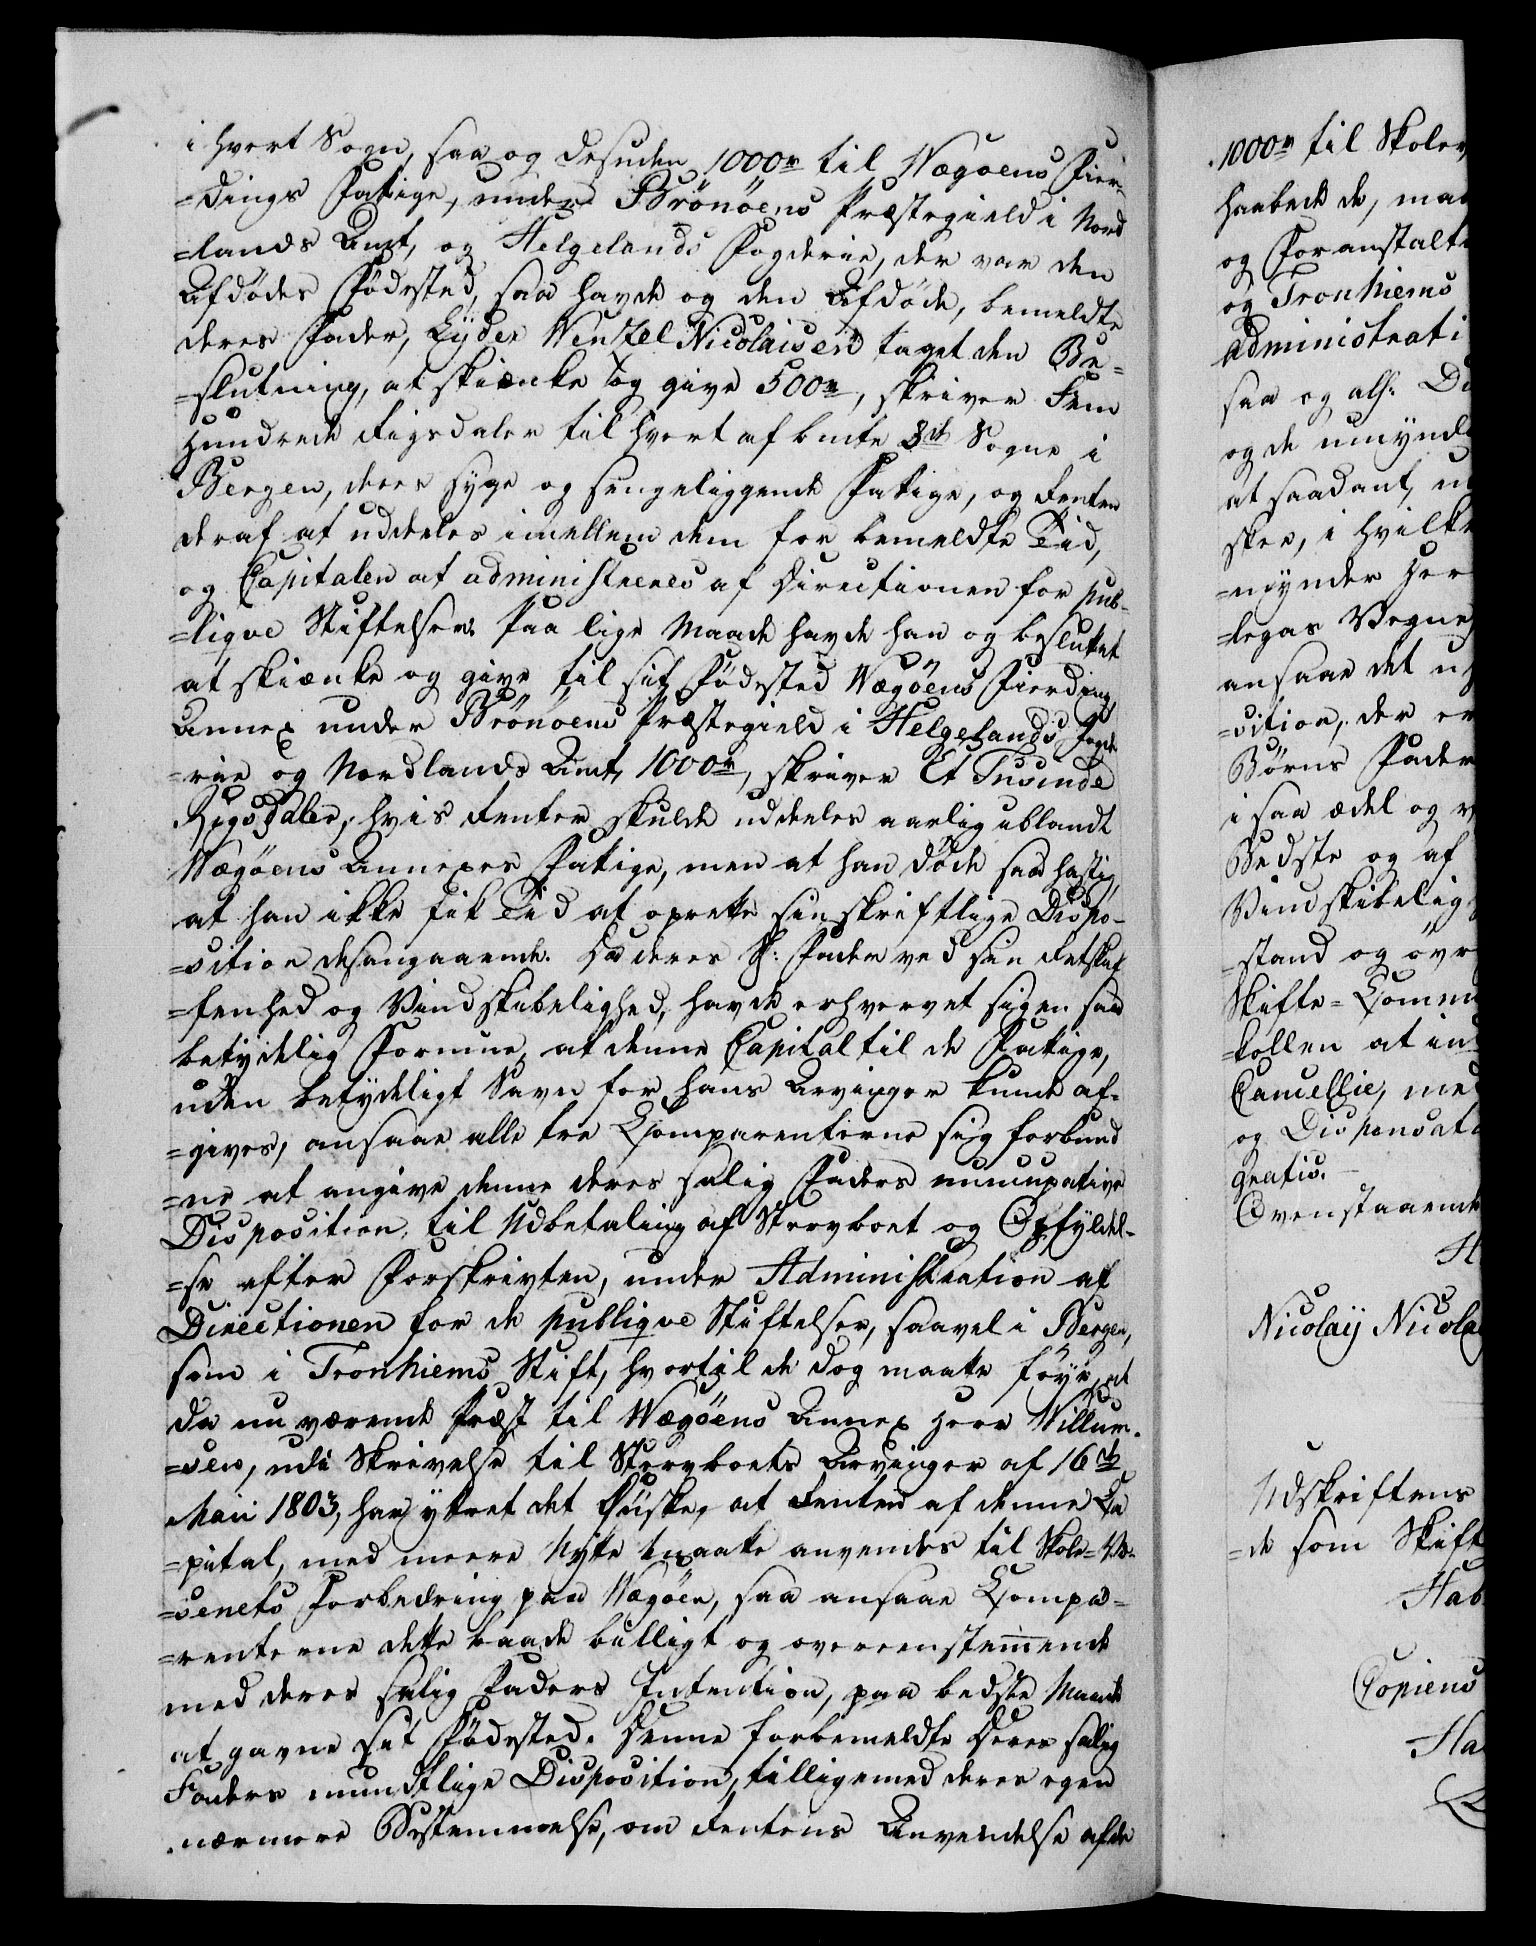 i hvert Sogn, saa og desuden 1000 rd til Vægøens Fier-
=dings Fatige, under Brönöens Præstegield i Nord
=lands Amt, og Helgelands Fogderie, der var den
Afdödes Födested, saa havde og den Afdöde, bemeldte
deres Fader, Lyder Wentzel Nicolaisen taget den Be=
=slutning, at skiænke og give 500 rd, skriver Fem
Hundrede Rigsdaler til hvert af bemte 3de Sogne i
Bergen, deres syge og sengeliggende Fatige, og Renten
deraf at uddeeles imellem dem for bemeldte Tid,
og Capitalen at administreres af Directionen for pub-
=lique Stiftelser. Paa lige Maade havde han og besluttet
at skiænke og give til sit Födested Vægöens Fierding,
Annex under Brönöens Præstegield i Helgelands Fogde
=rie og Nordlands Amt, 1000 rd, skriver Et Tusinde
Rigsdaler, hvis Renter skulde uddeeles aarlig iblandt
Vægöens Annexes Fatige, men at han döde saa hastig,
at han ikke fik Tid at oprette sin skriftlige Dispo-
=sition desangaaende. Da deres S: Fader ved sin Retskaf
=fenhed og Vindskibelighed, havde erhvervet sig en saa
betydelig Formue, at denne Capital til de Fatige,
uden betydeligt Savn for hans Arvinger kunde af=
=gives, ansaae alle tre Comparenterne sig forbund
=ne at angive denne deres salig Faders nuncupative
Disposition, til Udbetaling af Stervboet og Opfyldel-
=se efter Forskriften, under Administration af
Directionen for de publique Stiftelser, saavel i Bergen,
som i Tronhiems Stift, hvortil de dog maatte föye, at
da nu værende Præst til Vægöens Annex Herr Villum-
=sen, udi Skrivelse til Stervboets Arvinger af 16de
Maii 1803, har yttret det Önske, at Renten af denne Ca
=pital, med meere Nytte maatte anvendes til Skole=Væ-
=senets Forbedring paa Vægöen, saa ansaae Compa=
=renterne dette baade billigt og overeenstemende
med deres salig Faders Intention, paa bedste Maade
at gavne sit Födested. Denne forbemeldte deres salig
Faders mundtlige Disposition, tilligemed deres egen
nærmere Bestemmelse, om Rentens Anvendelse af de
1000 rd til Skolev
haabede de, maa
og Foranstalt
og Tronhiems
administrati
saa og
og de umynd
at saadant, u
skee, i hvilke
=mynder Her
=legas Vegne
ansaae det u
=sition, der er
Börns Fader
i saa ædel og v
Bedste og af
Vindskibelig
=stand og övr
Skifte=Comm
=kollen at in
Cancellie, me
og Dispensat
gratis.
Ovenstaaende
H
Nicolaij Nicola
Udskriftens
=de som Skift
Hab
Copiens
Ha